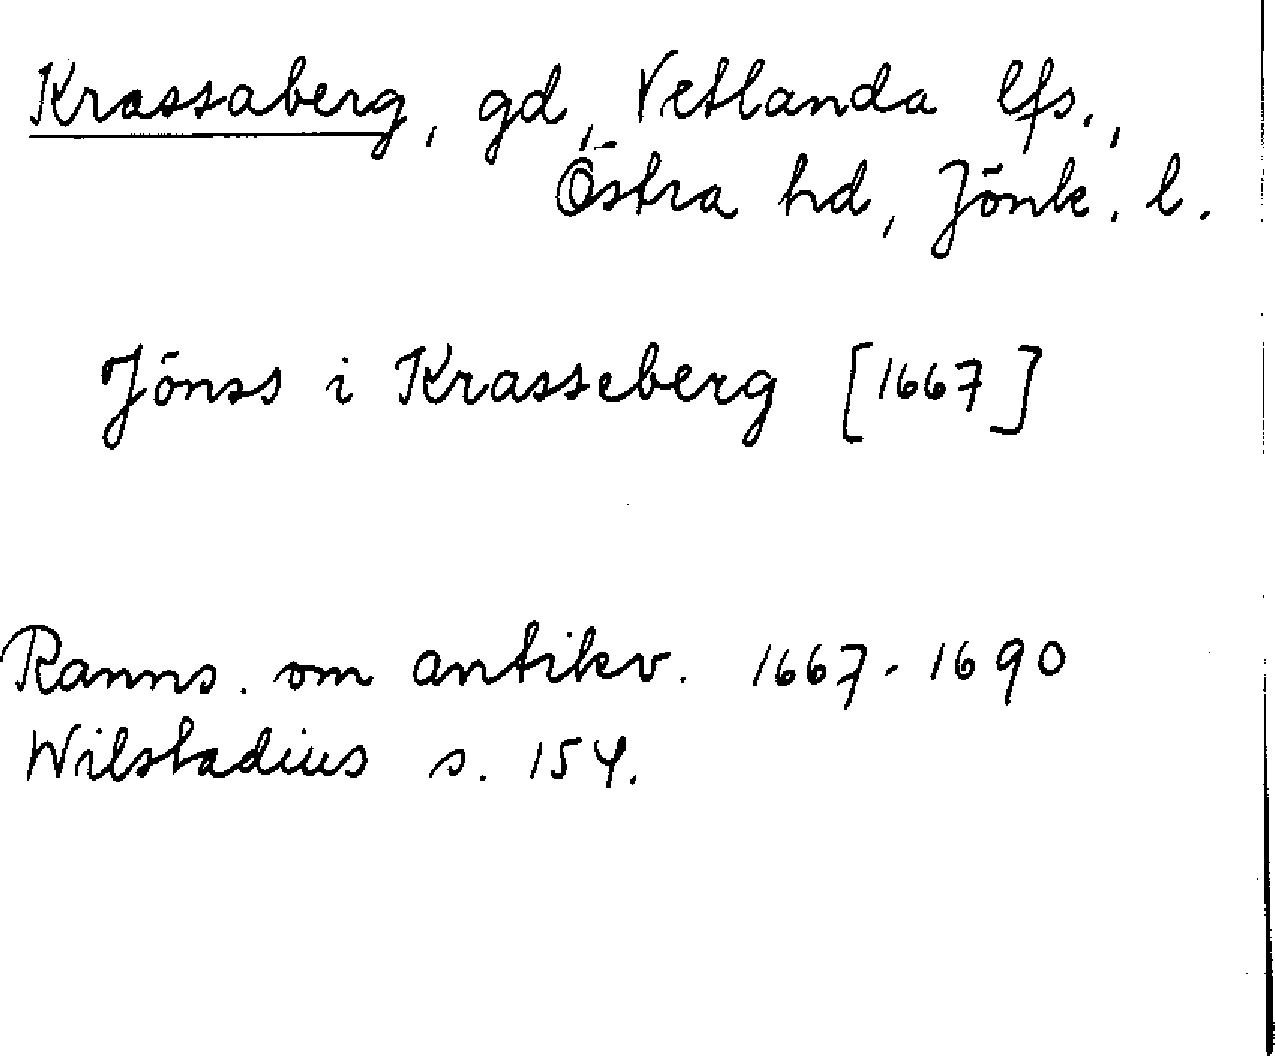 Krassaberg, gd, Vetlanda lfs.,
Östra hd, Jönk. l.
Jönss i Krasseberg [1667]
Ranns. om antikv. 1667-1690
Wilstadius s. 154.